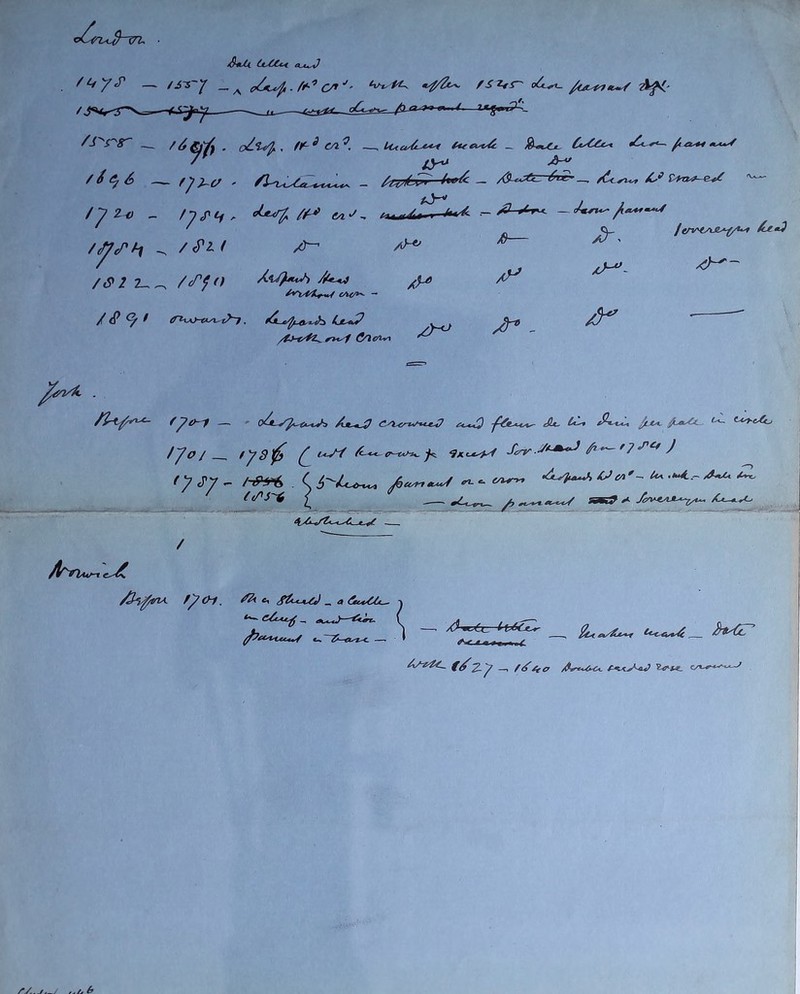 London.
Date letter and
1478 — 1557 — ^ Leop. Hd crd. with after 1545 Lion passant
1545 — 1557 " with Lion passant regard
1558 — 1696. Leop. Hd crd. — makers mark — Date letter Lion passant
Do Do
1696 — 1720. Britannia — — Date — Lions hd erased
Do
1720 — 1784. Leop Hd crd — — — Lion passant
1784 — 1821 Do Do Do Do. Sovereigns head
1822 — 1890 Leopards Head Do Do Do. Do —
without crown —
1891 onwards. Leopards head Do Do — Do —
without Crown
York.
Before 1701 — Leopards head crowned and fleur de lis dimi per pale in circle
1701 — 178 (not known except Sov. Head from 1784)
1787 — 1856 { 5 Lions passant on a cross Leopards hd crd — m. mk — Date
1856 — Lion passant & Sovereigns head
abolished —
Norwich
Before 1701. On a Shield — a Castle
in chief — and lion } — Date letter — Makers mark — Date
passant in base —
with 1627 — 1640 Double seeded rose crowned